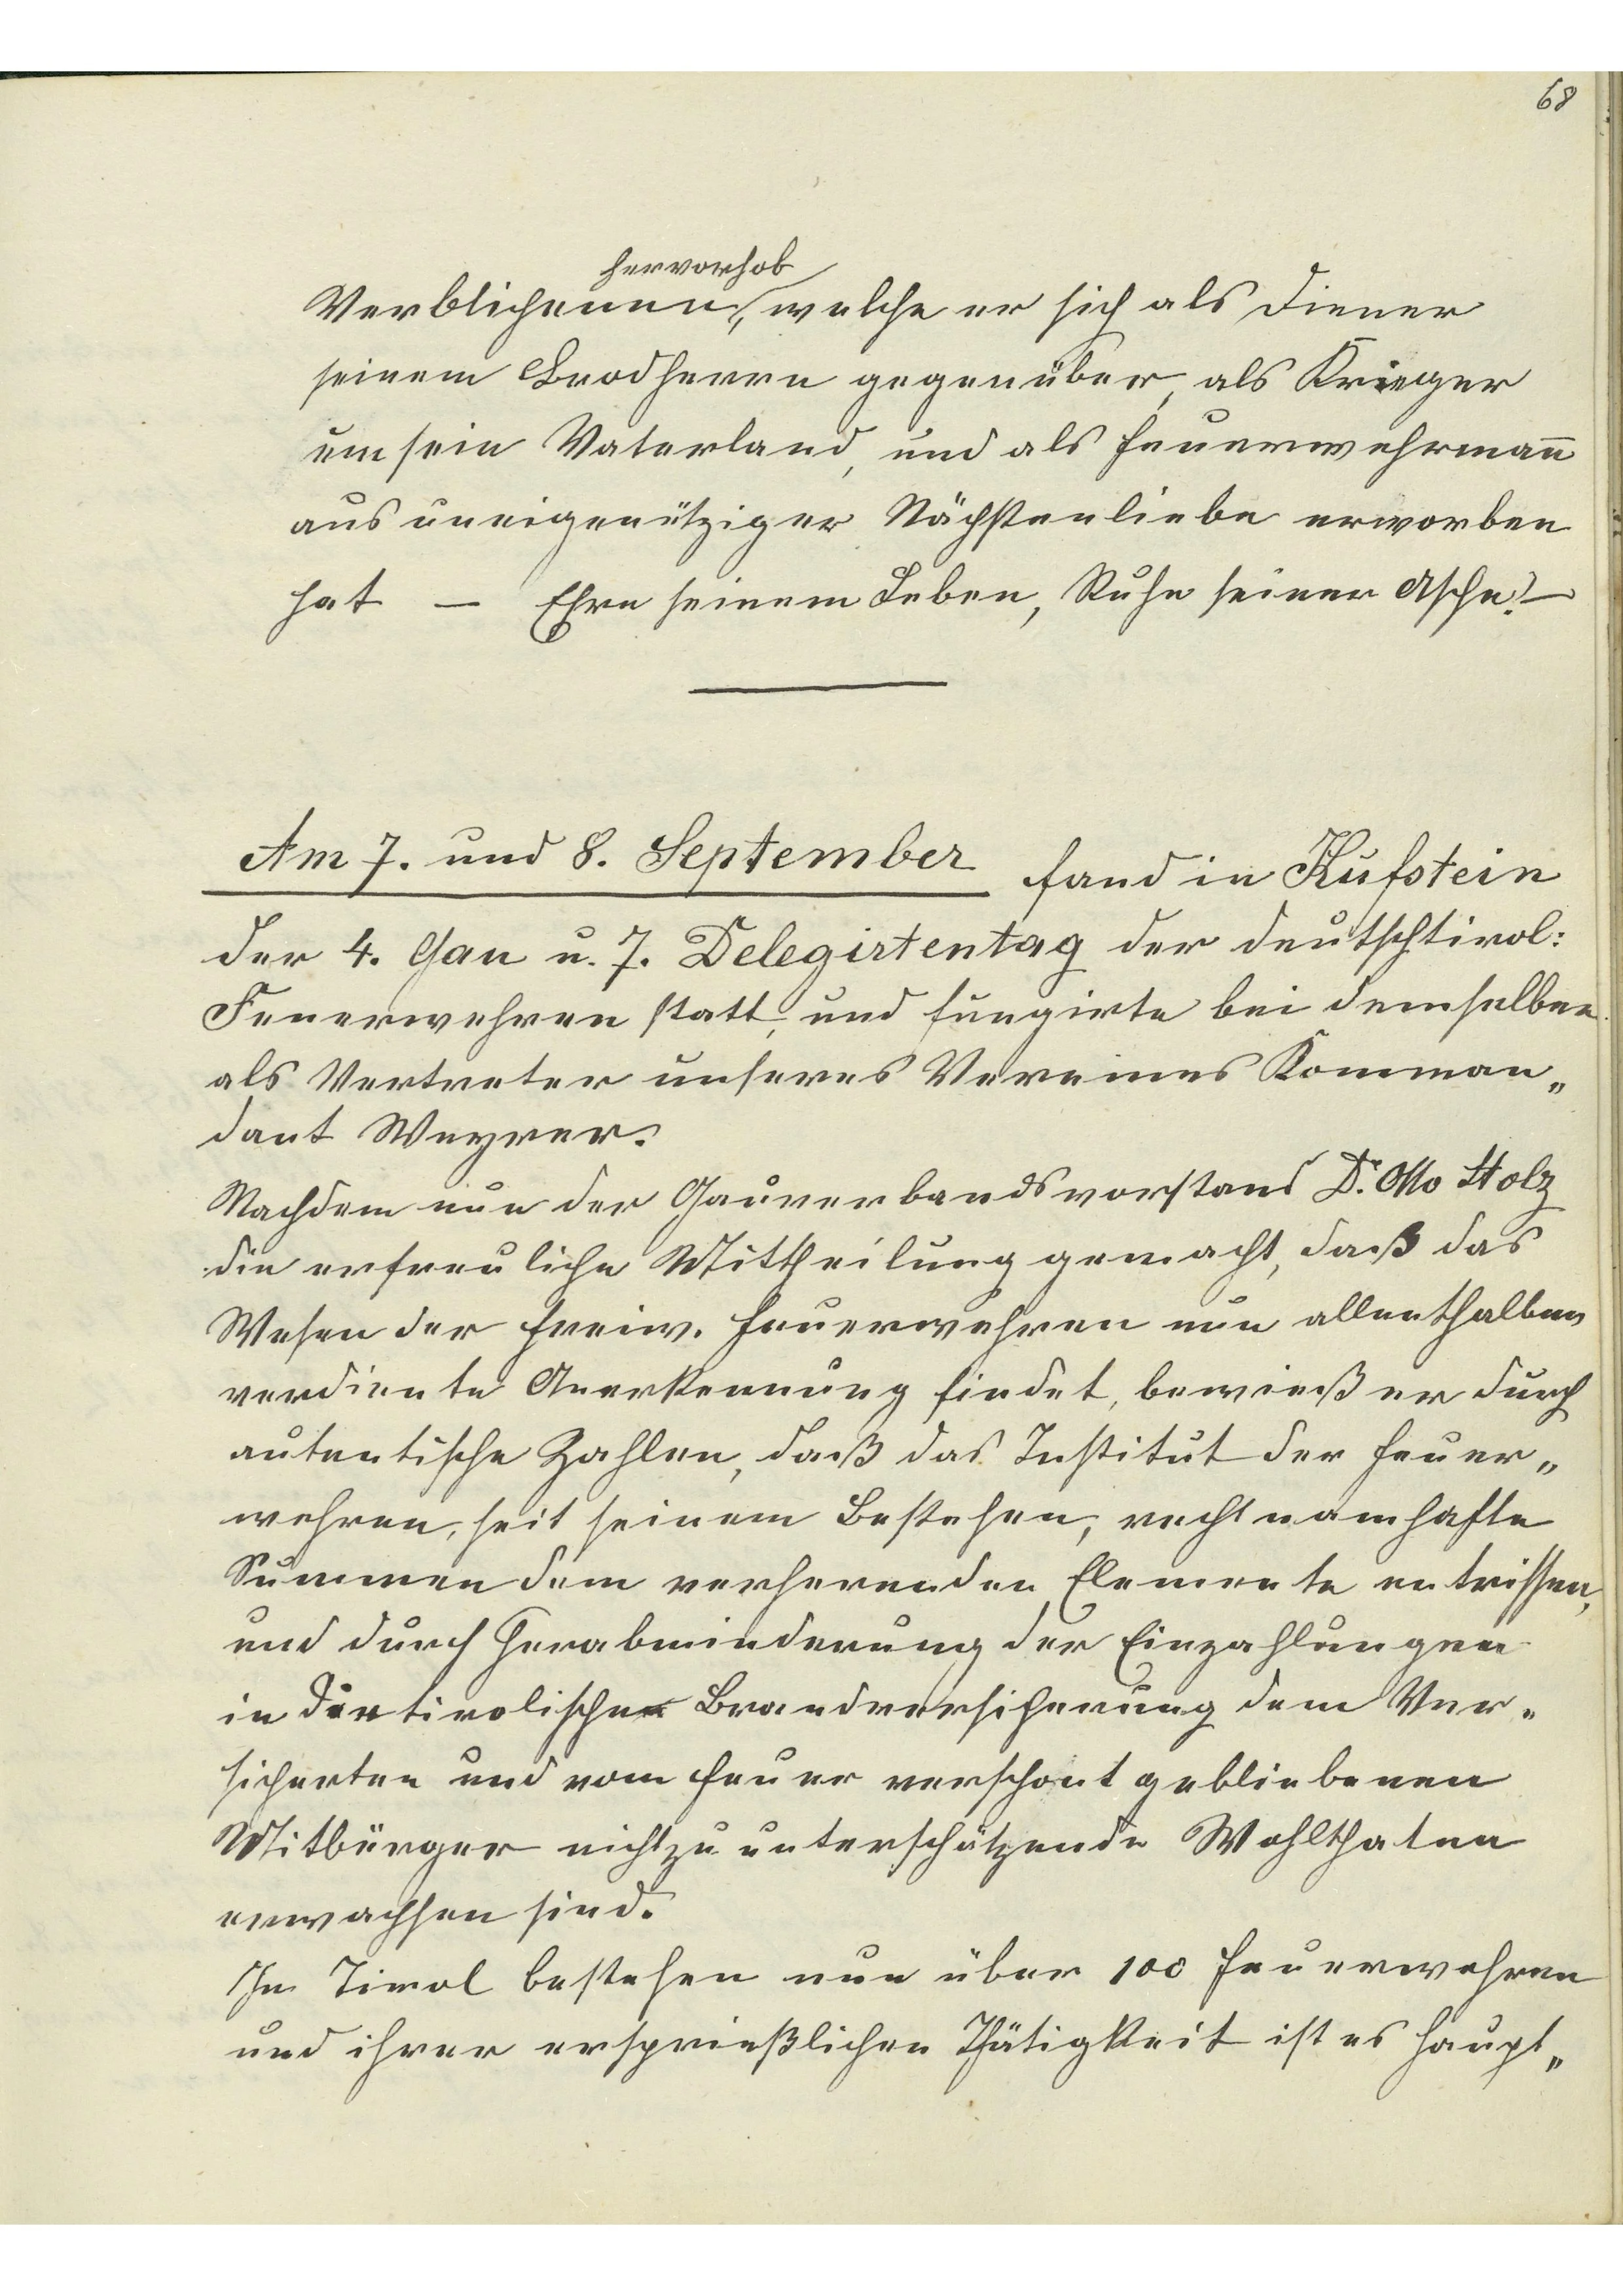 68
hervorhob
Verblichenen, welche er sich als Diener
seinem Brodherrn gegenüber, als Krieger
um sein Vaterland, und als Feuerwehrmañ
aus uneigennütziger Nächstenliebe erworben
hat — Ehre seinem Leben, Ruhe seiner Asche! —
Am 7. und 8. September fand in Kufstein
der 4. Gau u. 7. Delegirtentag der deutschtirol:
Feuerwehren statt, und fungirte bei demselben
als Vertreter unseres Vereines Komman„
dant Weyrer.
Nachdem nun der Gauverbandsvorstand Dr. Otto Stolz
die erfreuliche Mittheilung gemacht, daß das
Wesen der freiw. Feuerwehren nun allenthalben
verdiente Anerkennung findet, bewieß er durch
autentische Zahlen, daß das Institut der Feuer„
wehren, seit seinem Bestehen, recht namhafte
Summen dem verherenden Elemente entrissen,
und durch Herabminderung der Einzahlungen
in die tirolische Brandversicherung dem Ver„
sicherten und vom Feuer verschont gebliebenen
Mitbürger nicht zu unterschätzende Wohlthaten
erwachsen sind.
In Tirol bestehen nun über 100 Feuerwehren
und ihrer ersprießlichen Thätigkeit ist es haupt„